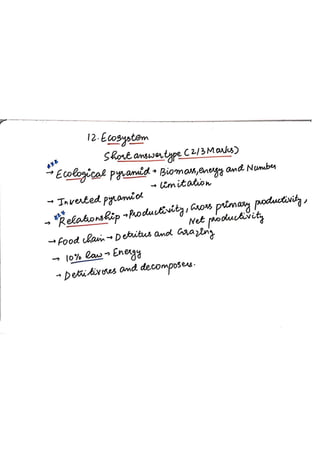 12. Ecosystem
Short answer type (2/3 Marks)
*** → Ecological pyramid → Biomass, energy and Number
→ Limitation
→ Inverted pyramid
→ *** Relationship → Productivity, Gross primary productivity,
Net productivity
→ Food chain → Detritus and Grazing
→ 10% law → Energy
→ Detritivores and decomposers.